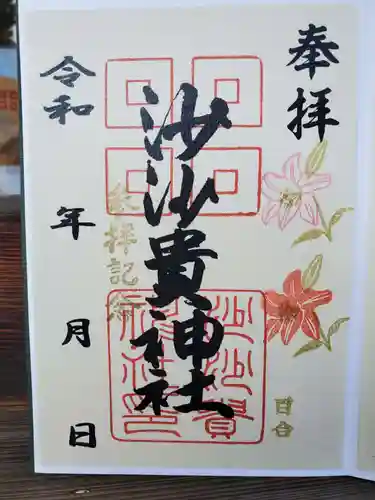 奉拝
沙沙貴神社
参拝記念
令和
年
月
日
沙沙貴
神社印
百合